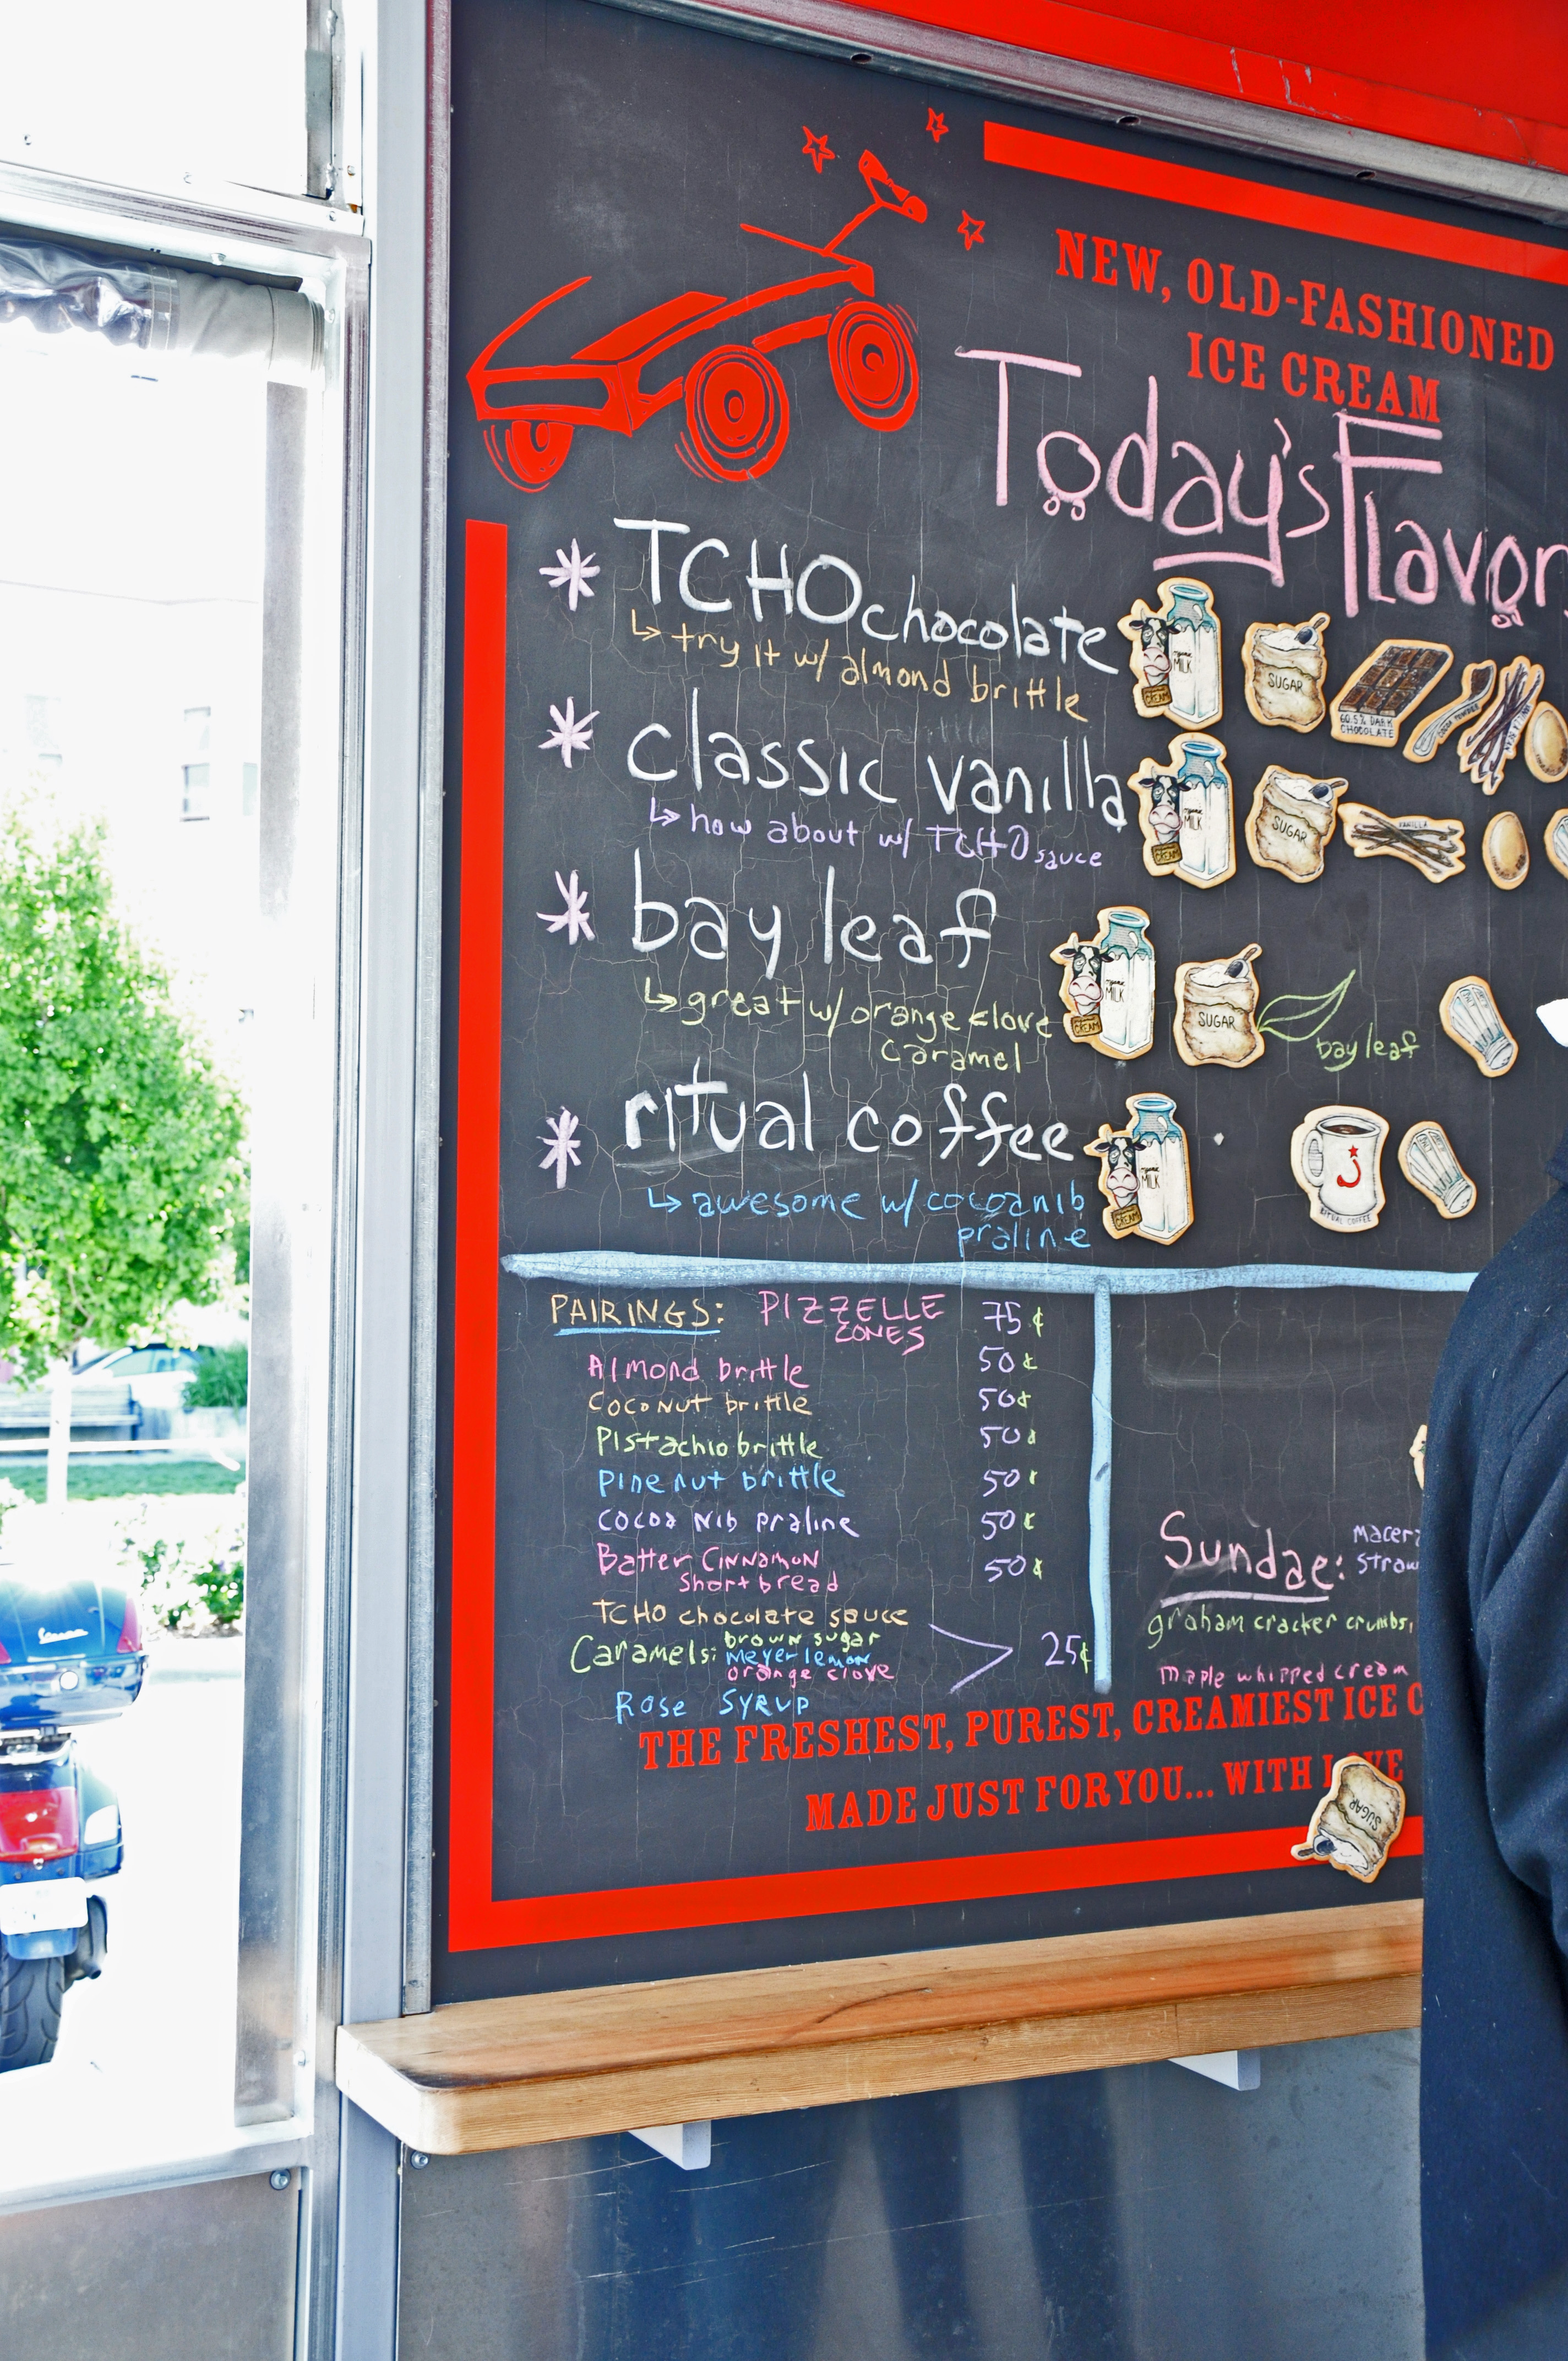 NEW, OLD-FASHIONED
ICE CREAM
Today's Flavor
TCHO chocolate
try it w/ almond brittle
MILK
CREAM
SUGAR
60.5% DARK
CHOCOLATE
COCOA POWDER
classic vanilla
how about w/ TCHO sauce
MILK
CREAM
SUGAR
VANILLA
bay leaf
great w/ orange clove
caramel
MILK
CREAM
SUGAR
bay leaf
ritual coffee
awesome w/ cocoanib
praline
MILK
CREAM
RITUAL COFFEE
PAIRINGS: PIZZELLE CONES 75¢
Almond brittle 50¢
Coconut brittle 50¢
Pistachio brittle 50¢
pine nut brittle 50¢
cocoa nib praline 50¢
Batter Cinnamon
Short bread 50¢
TCHO chocolate sauce
Caramels: brown sugar
meyer lemon
orange clove
25¢
Rose SYRUP
Sundae: macer
straw
graham cracker crumbs,
maple whipped cream
THE FRESHEST, PUREST, CREAMIEST ICE C
MADE JUST FOR YOU... WITH L VE
SUGAR
Vespa